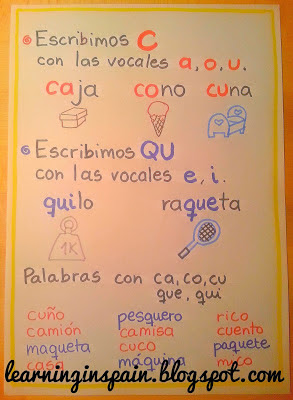 Escribimos C
con las vocales a, o, u.
caja cono cuna
Escribimos QU
con las vocales e, i.
quilo raqueta
1K
Palabras con ca, co, cu
que, qui
cuño pesquero rico
camión camisa cuento
maqueta cuco paquete
casa máquina mico
learninginspain.blogspot.com